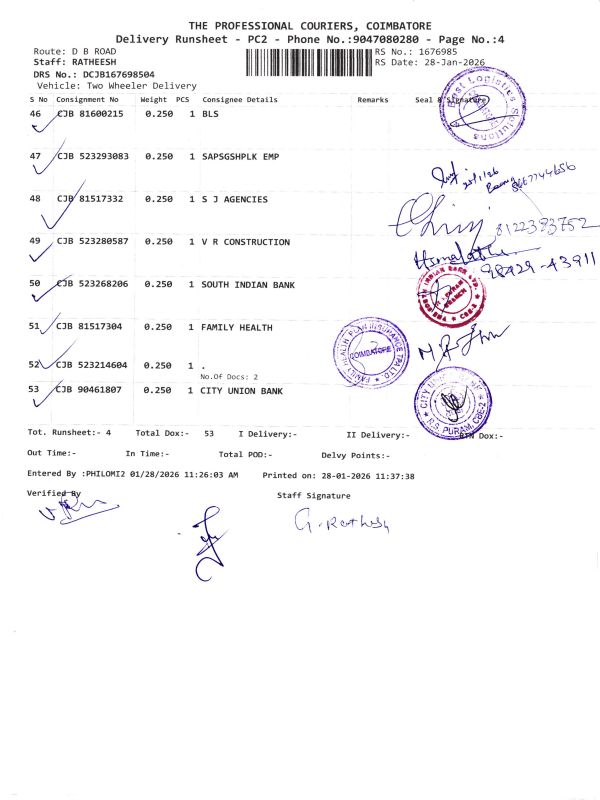 THE PROFESSIONAL COURIERS, COIMBATORE
Delivery Runsheet - PC2 - Phone No.:9047080280 - Page No.:4
Route: D B ROAD RS No.: 1676985
Staff: RATHEESH RS Date: 28-Jan-2026
DRS No.: DCJB167698504
Vehicle: Two Wheeler Delivery
S No Consignment No Weight PCS Consignee Details Remarks Seal & Signature
46 CJB 81600215 0.250 1 BLS
Logistics Solutions
47 CJB 523293083 0.250 1 SAPSGSHPLK EMP
48 CJB 81517332 0.250 1 S J AGENCIES
8122393752
49 CJB 523280587 0.250 1 V R CONSTRUCTION
98429-43911
50 CJB 523268206 0.250 1 SOUTH INDIAN BANK
51 CJB 81517304 0.250 1 FAMILY HEALTH
FAMILY HEALTH PLAN INSURANCE TPA LTD.
COIMBATORE
52 CJB 523214604 0.250 1 .
No.Of Docs: 2
53 CJB 90461807 0.250 1 CITY UNION BANK
R.S. PURAM, CBE-2
Tot. Runsheet:- 4 Total Dox:- 53 I Delivery:- II Delivery:- RTN Dox:-
Out Time:- In Time:- Total POD:- Delvy Points:-
Entered By :PHILOMI2 01/28/2026 11:26:03 AM Printed on: 28-01-2026 11:37:38
Verified By Staff Signature
G. Ratheesh